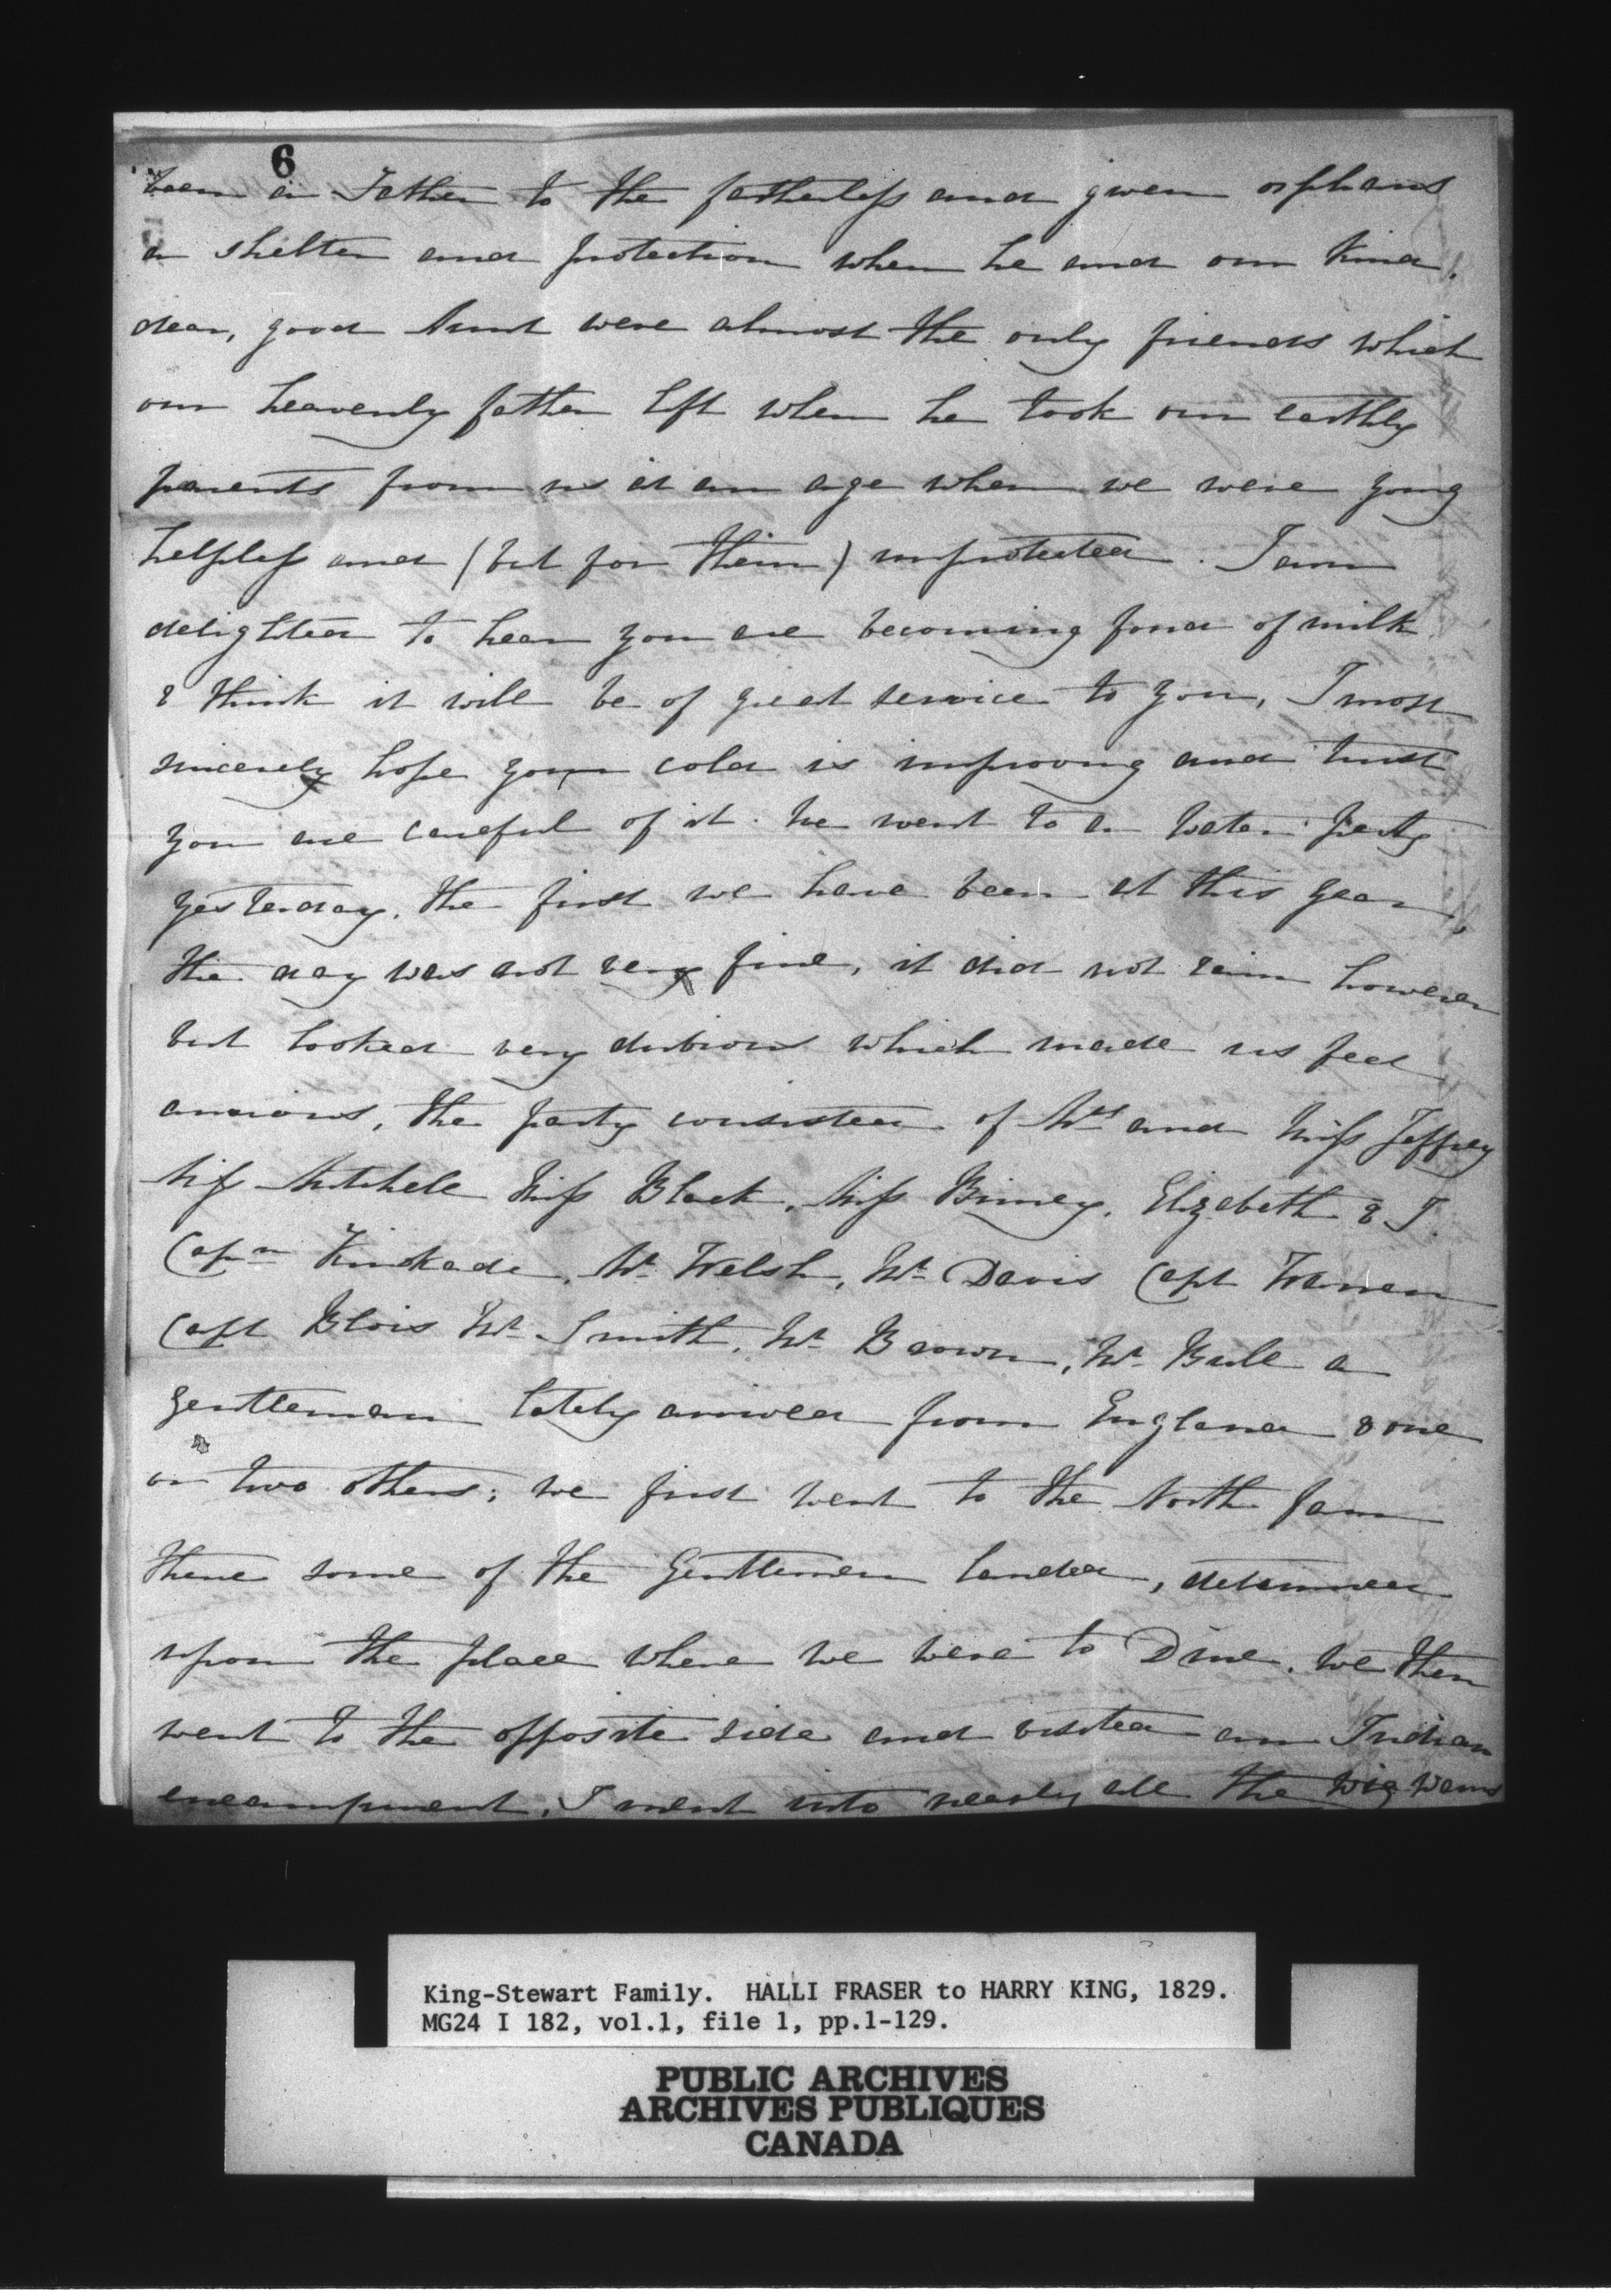 6
been a Father to the fatherless and given orphans
a shelter and protection when he and our kind,
dear, good Aunt were almost the only friends which
our heavenly father left when he took our earthly
parents from us at an age when we were young
helpless and (but for them) unprotected. I am
delighted to hear you are becoming fond of milk
& think it will be of great service to you, I most
sincerely hope your cold is improving and trust
you are careful of it. We went to a water party
yesterday, the first we have been at this year,
the day was not very fine, it did not rain however
but looked very dubious which made us feel
anxious, the party consisted of Mrs and Miss Jeffrey
Miss Mitchell Miss Black, Miss Binney, Elizabeth & I.
Capn Kinkade, Mr Welsh, Mr Davis Capt Warren
Capt Blois Mr Smith, Mr Brown, Mr Bull a
gentleman lately arrived from England & one
or two others; we first went to the North farm
there some of the Gentlemen landed, determined
upon the place where we were to Dine. We then
went to the opposite side and visited an Indian
encampment, I went into nearly all the wigwams
King-Stewart Family. HALLI FRASER to HARRY KING, 1829.
MG24 I 182, vol.1, file 1, pp.1-129.
PUBLIC ARCHIVES
ARCHIVES PUBLIQUES
CANADA